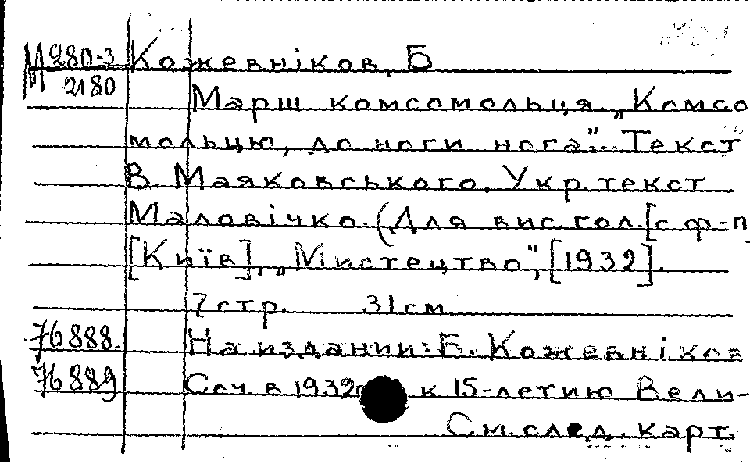 М 980-3 Кожевніков, Б
2180
Марш комсомольця. „Комсо
мольцю, до ноги нога". Текст
В. Маяковського. Укр. текст
Маловічко. (Для вис. гол. [с ф-п
[Київ], „Мистецтво", [1932].
7 стр. 31 см.
76888. На издании: Б. Кожевніков
76889 Соч. в 1932 к 15-летию Вели-
См. след. карт.